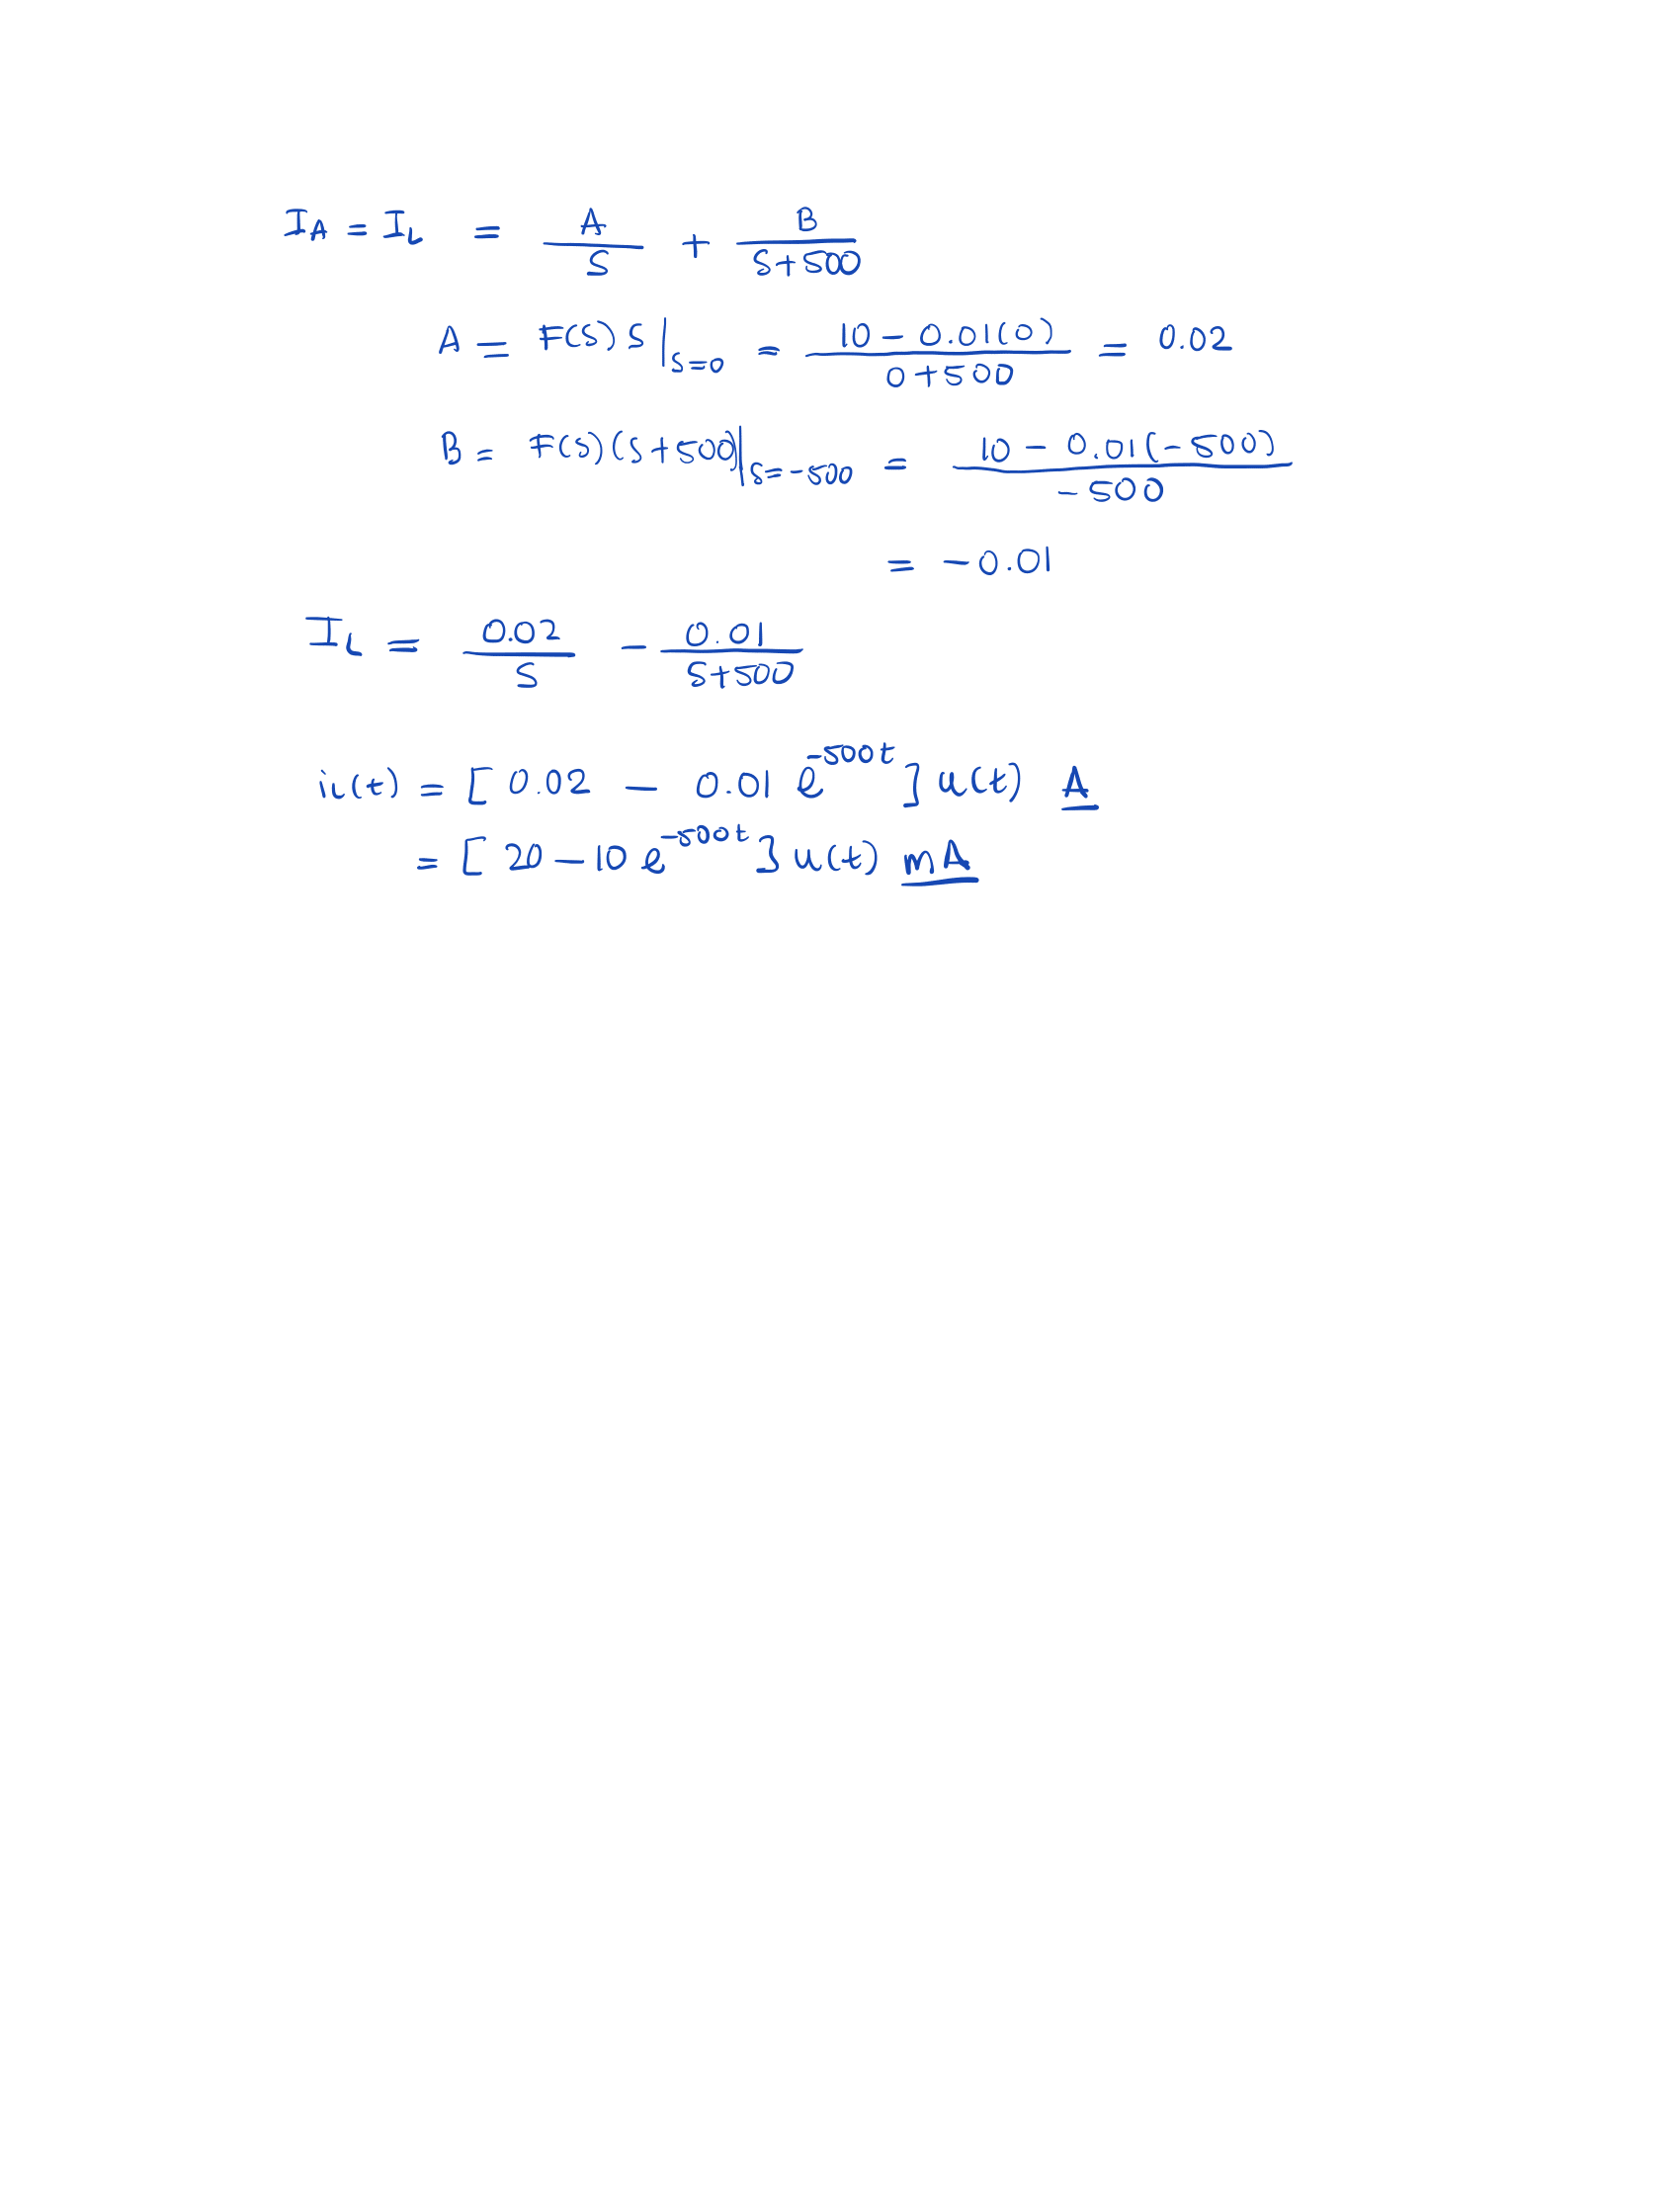 I_A = I_L = A/S + B/(S+500)
A = F(S) S |_{S=0} = (10 - 0.01(0))/(0+500) = 0.02
B = F(S)(S+500)|_{S=-500} = (10 - 0.01(-500))/(-500)
= -0.01
I_L = 0.02/S - 0.01/(S+500)
i_L(t) = [ 0.02 - 0.01 e^{-500t} ] u(t) A
= [ 20 - 10 e^{-500t} ] u(t) mA